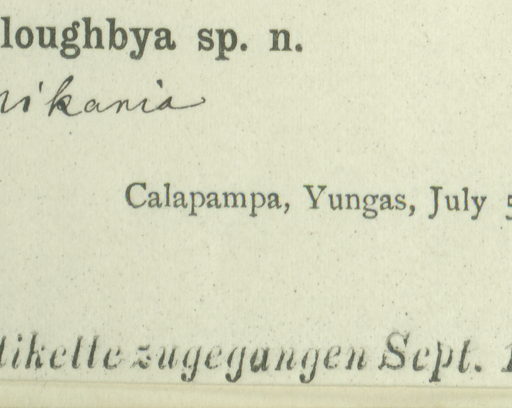 loughbya sp. n.
mikania
Calapampa, Yungas, July 5
tikette zugegangen Sept. 1